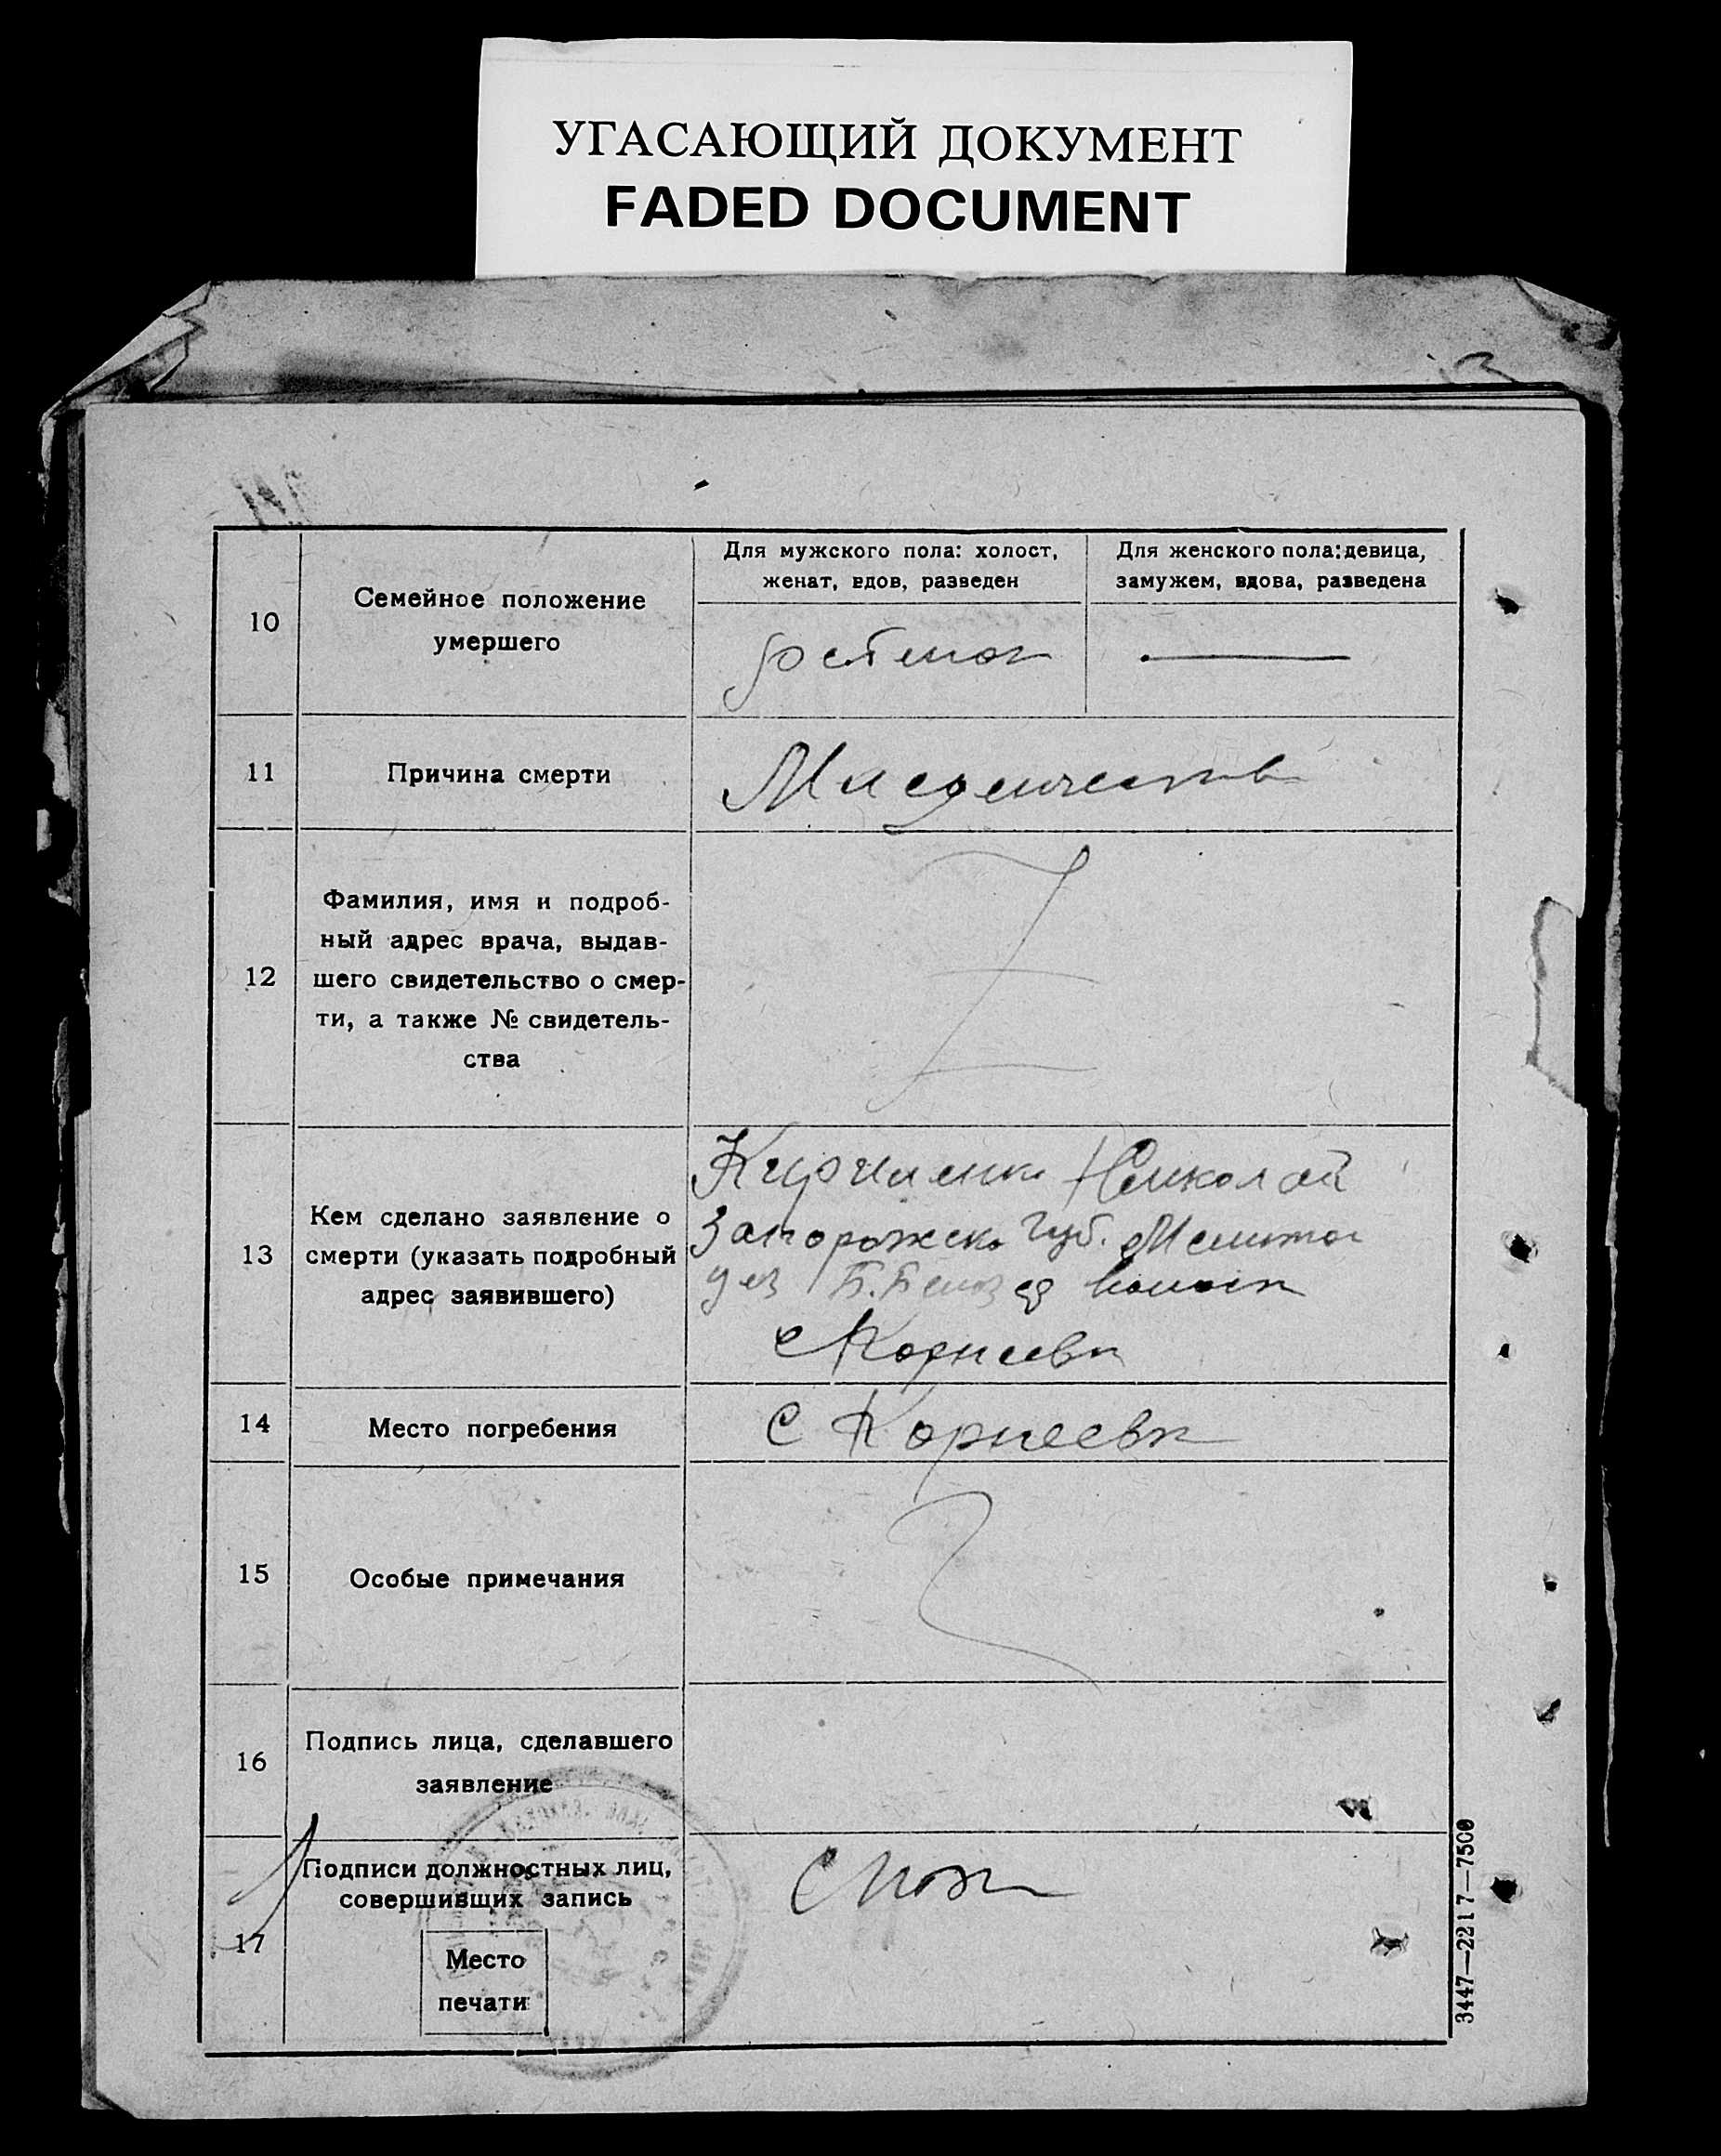 УГАСАЮЩИЙ ДОКУМЕНТ
FADED DOCUMENT
10
Семейное положение
умершего
Для мужского пола: холост,
женат, вдов, разведен
Для женского пола: девица,
замужем, вдова, разведена
11
Причина смерти
12
Фамилия, имя и подроб-
ный адрес врача, выдав-
шего свидетельство о смер-
ти, а также № свидетель-
ства
13
Кем сделано заявление о
смерти (указать подробный
адрес заявившего)
Николай
Запорожско губ.
уез
с Корнеевк
14
Место погребения
С Корнеевк
15
Особые примечания
16
Подпись лица, сделавшего
заявление
17
Подписи должностных лиц,
совершивших запись
Место
печати
3447—2217—7500